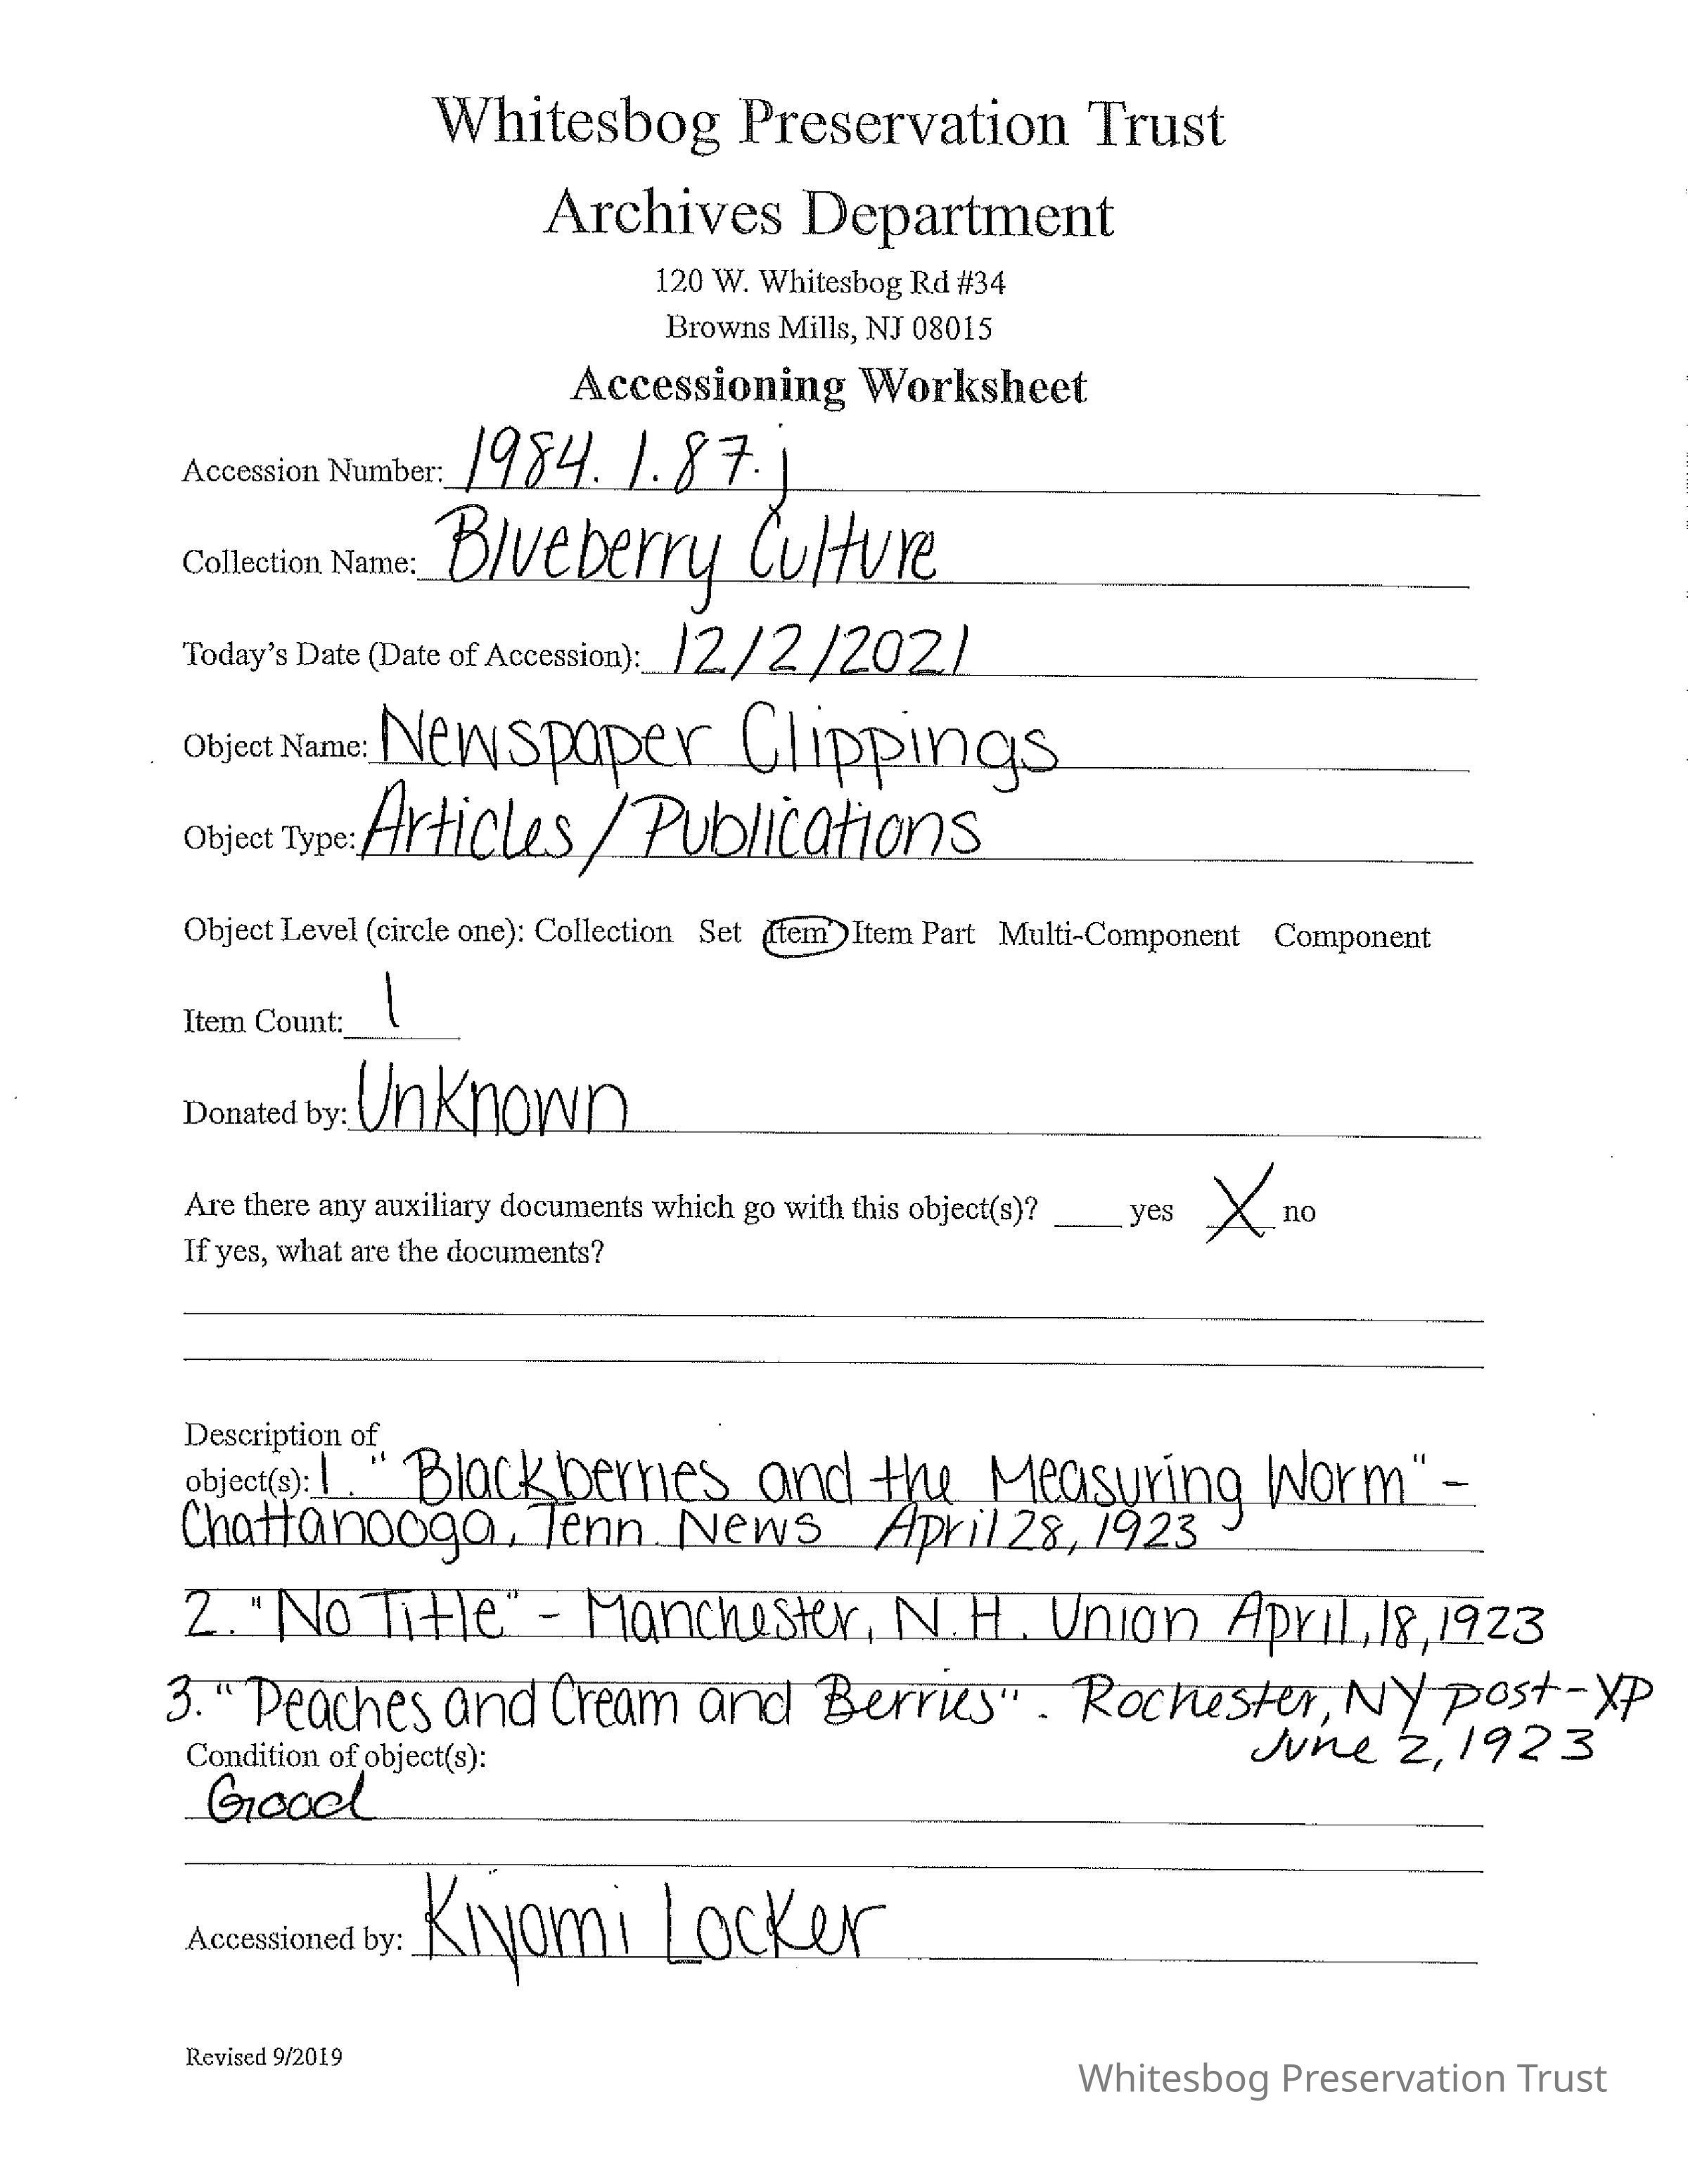 Whitesbog Preservation Trust
Archives Department
120 W. Whitesbog Rd #34
Browns Mills, NJ 08015
Accessioning Worksheet
Accession Number: 1984.1.87.j
Collection Name: Blueberry Culture
Today's Date (Date of Accession): 12/2/2021
Object Name: Newspaper Clippings
Object Type: Articles/Publications
Object Level (circle one): Collection Set Item Item Part Multi-Component Component
Item Count: 1
Donated by: Unknown
Are there any auxiliary documents which go with this object(s)? ____ yes X no
If yes, what are the documents?
Description of
object(s): 1. "Blackberries and the Measuring Worm" -
Chattanooga, Tenn. News April 28, 1923
2. "No Title" - Manchester, N.H. Union April, 18, 1923
3. "Peaches and Cream and Berries". Rochester, NY post-XP
June 2, 1923
Condition of object(s):
Good
Accessioned by: Kiyomi Locker
Revised 9/2019
Whitesbog Preservation Trust